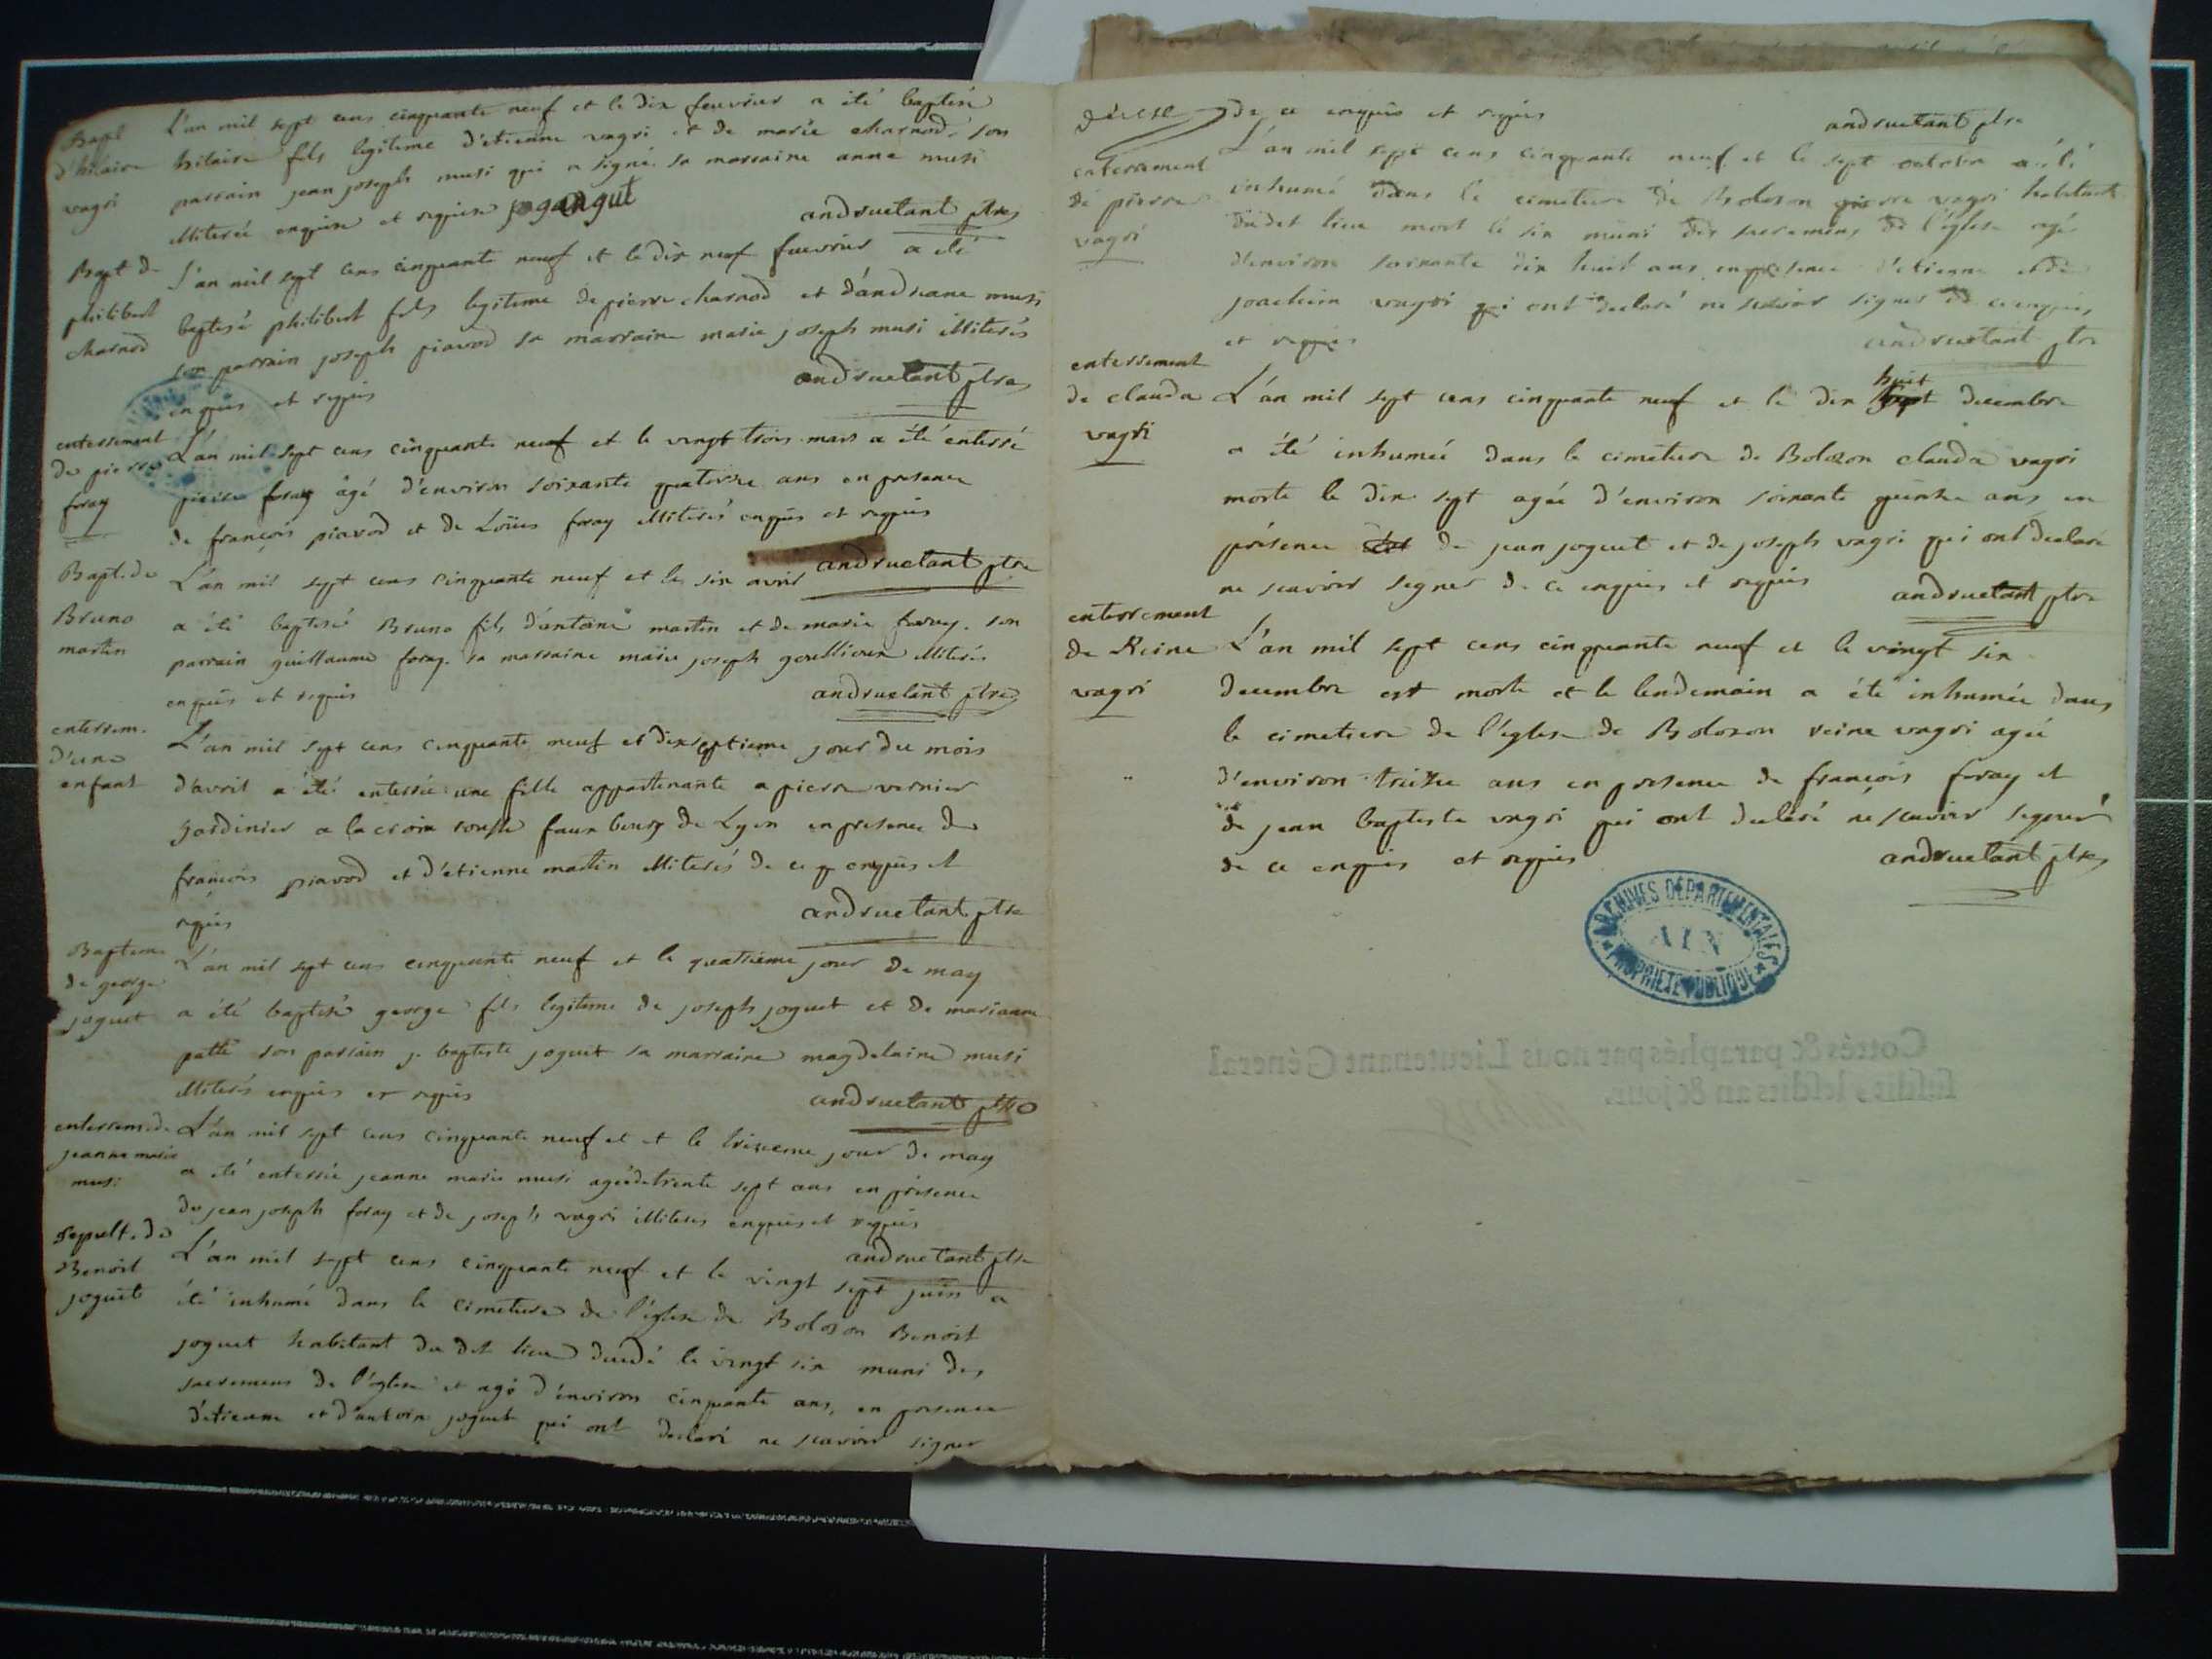 Bapt
d'hilaire
vagri
L'an mil sept cens cinquante neuf et le dix feuvrier a été baptisé
hilaire fils legitime d'etienne vagri et de marie charnod. son
parrain jean joseph musi qui a signé. sa marraine anne musi
illiterée enquise et requise
andruetant ptre
Bapt de
philibert
charnod
L'an mil sept cens cinquante neuf et le dix neuf feuvrier a été
baptisé philibert fils legitime de pierre charnod et d'andreane musi
son parrain joseph piavod sa marraine marie joseph musi illiterés
enquis et requis
andruetant ptre
enterrement
de pierre
foray
L'an mil sept cens cinquante neuf et le vingt trois mars a été enterré
pierre foray âgé d'environ soixante quatorze ans en presence
de françois piavod et de Loüis foray illiterés enquis et requis
andruetant ptre
Bapt. de
Bruno
martin
L'an mil sept cens cinquante neuf et le six avril
a été baptisé Bruno fils d'antoine martin et de marie foray. son
parrain guillaume foray. sa marraine marie joseph illiterés
enquis et requis
andruetant ptre
enterrem.
d'une
enfant
L'an mil sept cens cinquante neuf et dixseptieme jour du mois
d'avril a été enterrée une fille appartenante a pierre vernier
jardinier a la croix rousse faux bourg de Lyon en presence de
françois piavod et d'etienne martin illiterés de ce enquis et
requis
andruetant ptre
Bapteme
de george
joguet
L'an mil sept cens cinquante neuf et le quatrieme jour de may
a été baptisé george fils legitime de joseph joguet et de marianne
patté son parrain j. baptiste joguet sa marraine magdelaine musi
illiterés enquis et requis
andruetant ptre
enterrem. de
jeanne marie
musi
L'an mil sept cens cinquante neuf et et le treizeme jour de may
a été enterrée jeanne marie musi agée de trente sept ans en présence
de jean joseph foray et de joseph vagri illiterés enquis et requis
andruetant ptre
sepult. de
Benoit
joguet
L'an mil sept cens cinquante neuf et le vingt sept juin a
été inhumé dans le cimetiere de l'église de Bolozon Benoit
joguet habitant du dit lieu decedé le vingt six muni des
sacremens de l'église et agé d'environ cinquante ans, en presence
d'etienne et d'antoine joguet qui ont declaré ne scavoir signer
de ce enquis et requis
andruetant ptre
enterrement
de pierre
vagri
L'an mil sept cens cinquante neuf et le sept octobre a été
inhumé dans le cimetiere de Bolozon pierre vagri habitant
dudit lieu mort le six muni des sacremens de l'église agé
d'environ soixante dix huit ans en presence d'etienne et de
joachim vagri qui ont declaré ne scavoir signer de ce enquis,
et requis
andruetant ptre
enterrement
de clauda
vagri
L'an mil sept cens cinquante neuf et le dix huit decembre
a été inhumée dans le cimetiere de Bolozon clauda vagri
morte le dix sept agée d'environ soixante quinze ans en
présence de jean joguet et de joseph vagri qui ont declaré
ne scavoir signer de ce enquis et requis
andruetant ptre
enterrement
de Reine
vagri
L'an mil sept cens cinquante neuf et le vingt six
decembre est morte et le lendemain a été inhumée dans
le cimetiere de l'église de Bolozon reine vagri agée
d'environ treize ans en presence de françois foray et
de jean baptiste vagri qui ont declaré ne scavoir signer
de ce enquis et requis
andruetant ptre
ARCHIVES DÉPARTEMENTALES
AIN
PROPRIÉTÉ PUBLIQUE
Cottés & paraphés par nous Lieutenant Géneral
susdit, lesdits an & jour.